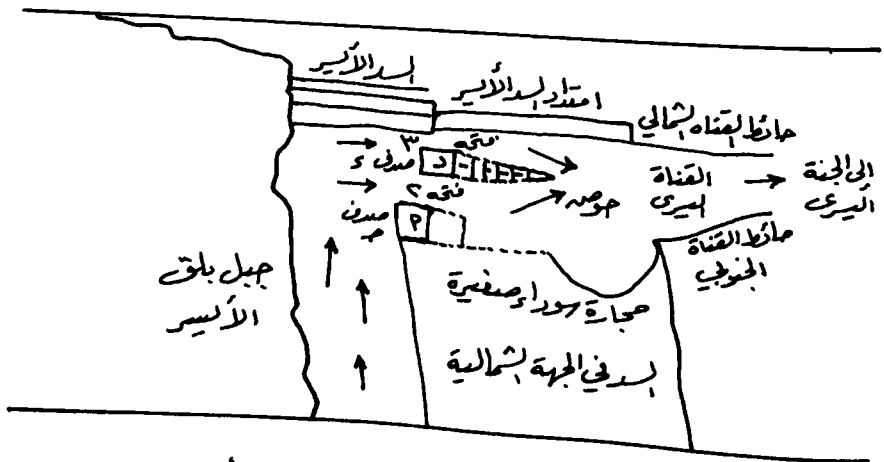 السد الأيسر
امتداد السد الأيسر
حائط القناه الشمالي
فتحه ٣
صدف ء
د
فتحه ٢
صدف
ج
م
حوض
القناة
اليسرى
الى الجنة
اليسرى
حائط القناة
الجنوبي
جبل بلق
الأليسر
حجارة سوداء صغيرة
السد في الجهة الشمالية